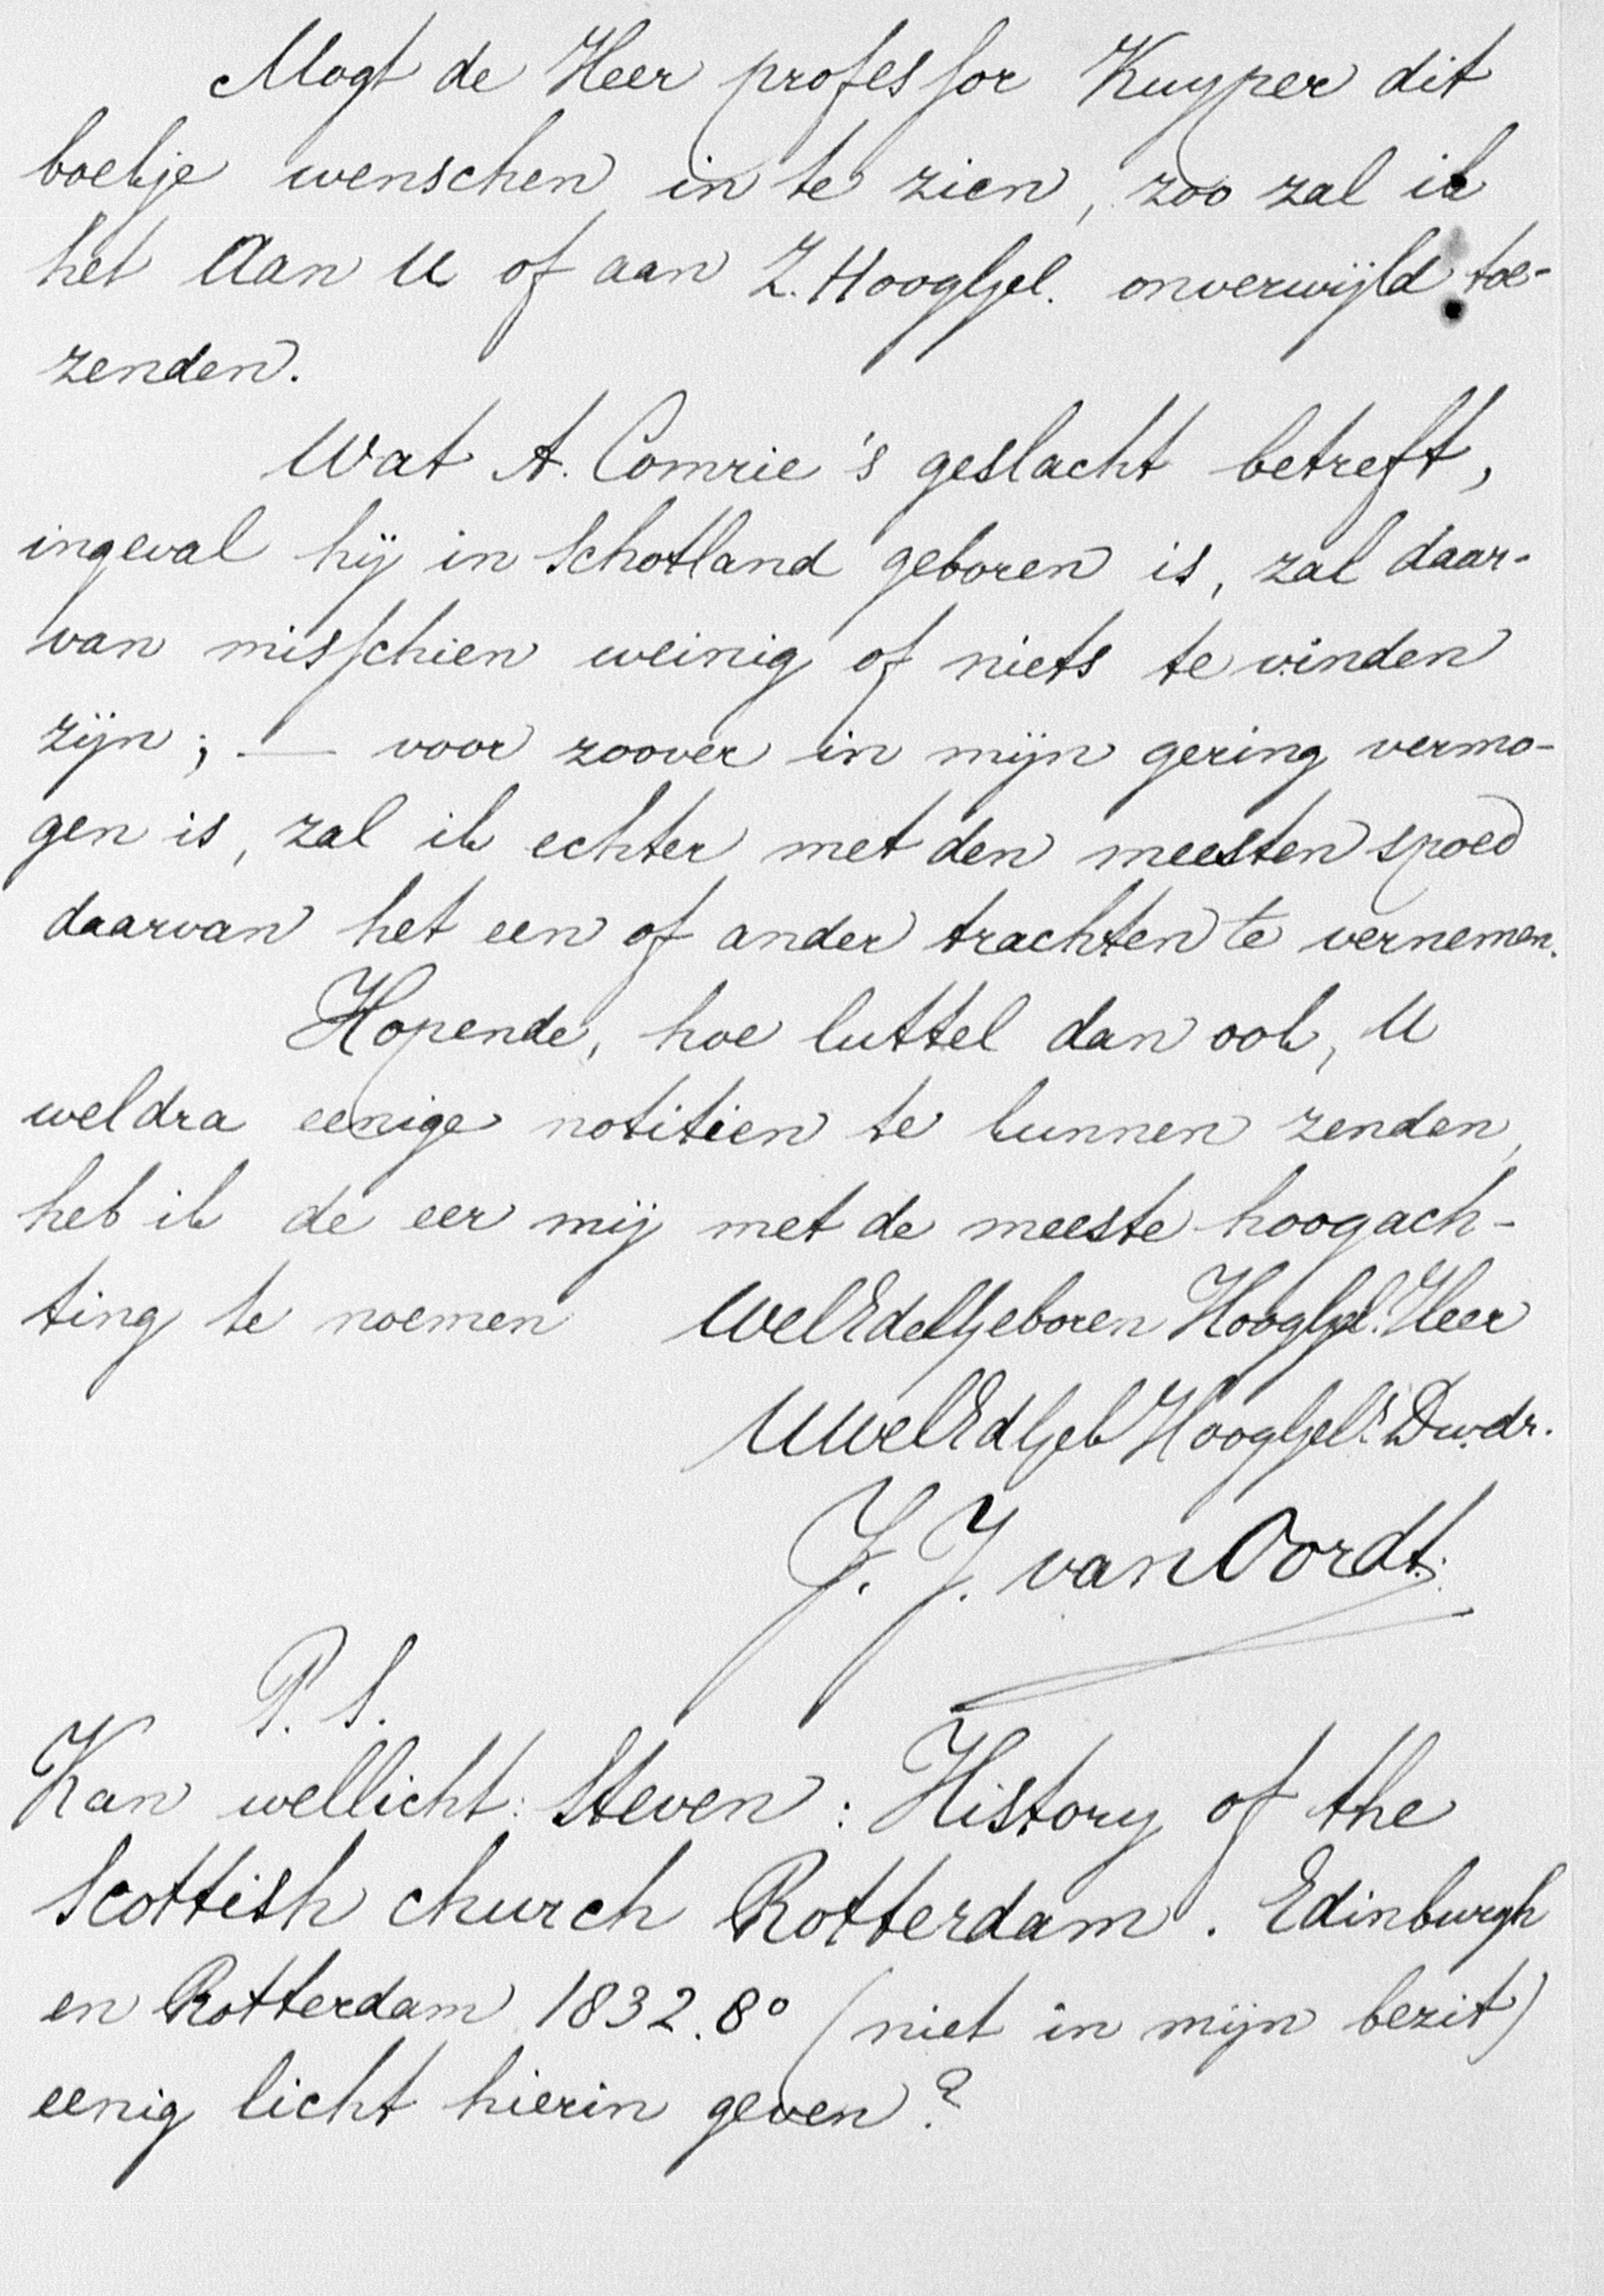 Mogt de Heer professor Kuyper dit
boekje wenschen in te zien, zoo zal ik
het aan U of aan Z. HoogGel. onverwijld toe-
zenden.
Wat A. Comrie's geslacht betreft,
ingeval hij in Schotland geboren is, zal daar-
van misschien weinig of niets te vinden
zijn; — voor zoover in mijn gering vermo-
gen is, zal ik echter met den meesten spoed
daarvan het een of ander trachten te vernemen.
Hopende, hoe luttel dan ook, U
weldra eenige notitien te kunnen zenden,
heb ik de eer mij met de meeste hoogach-
ting te noemen WelEdelGeboren HoogGel. Heer
UWelEdGeb HoogGel.s Dwdr.
J. J. van Oordt.
P. S.
Kan wellicht: Steven: History of the
Scottish church Rotterdam. Edinburgh
en Rotterdam 1832. 8° (niet in mijn bezit)
eenig licht hierin geven?